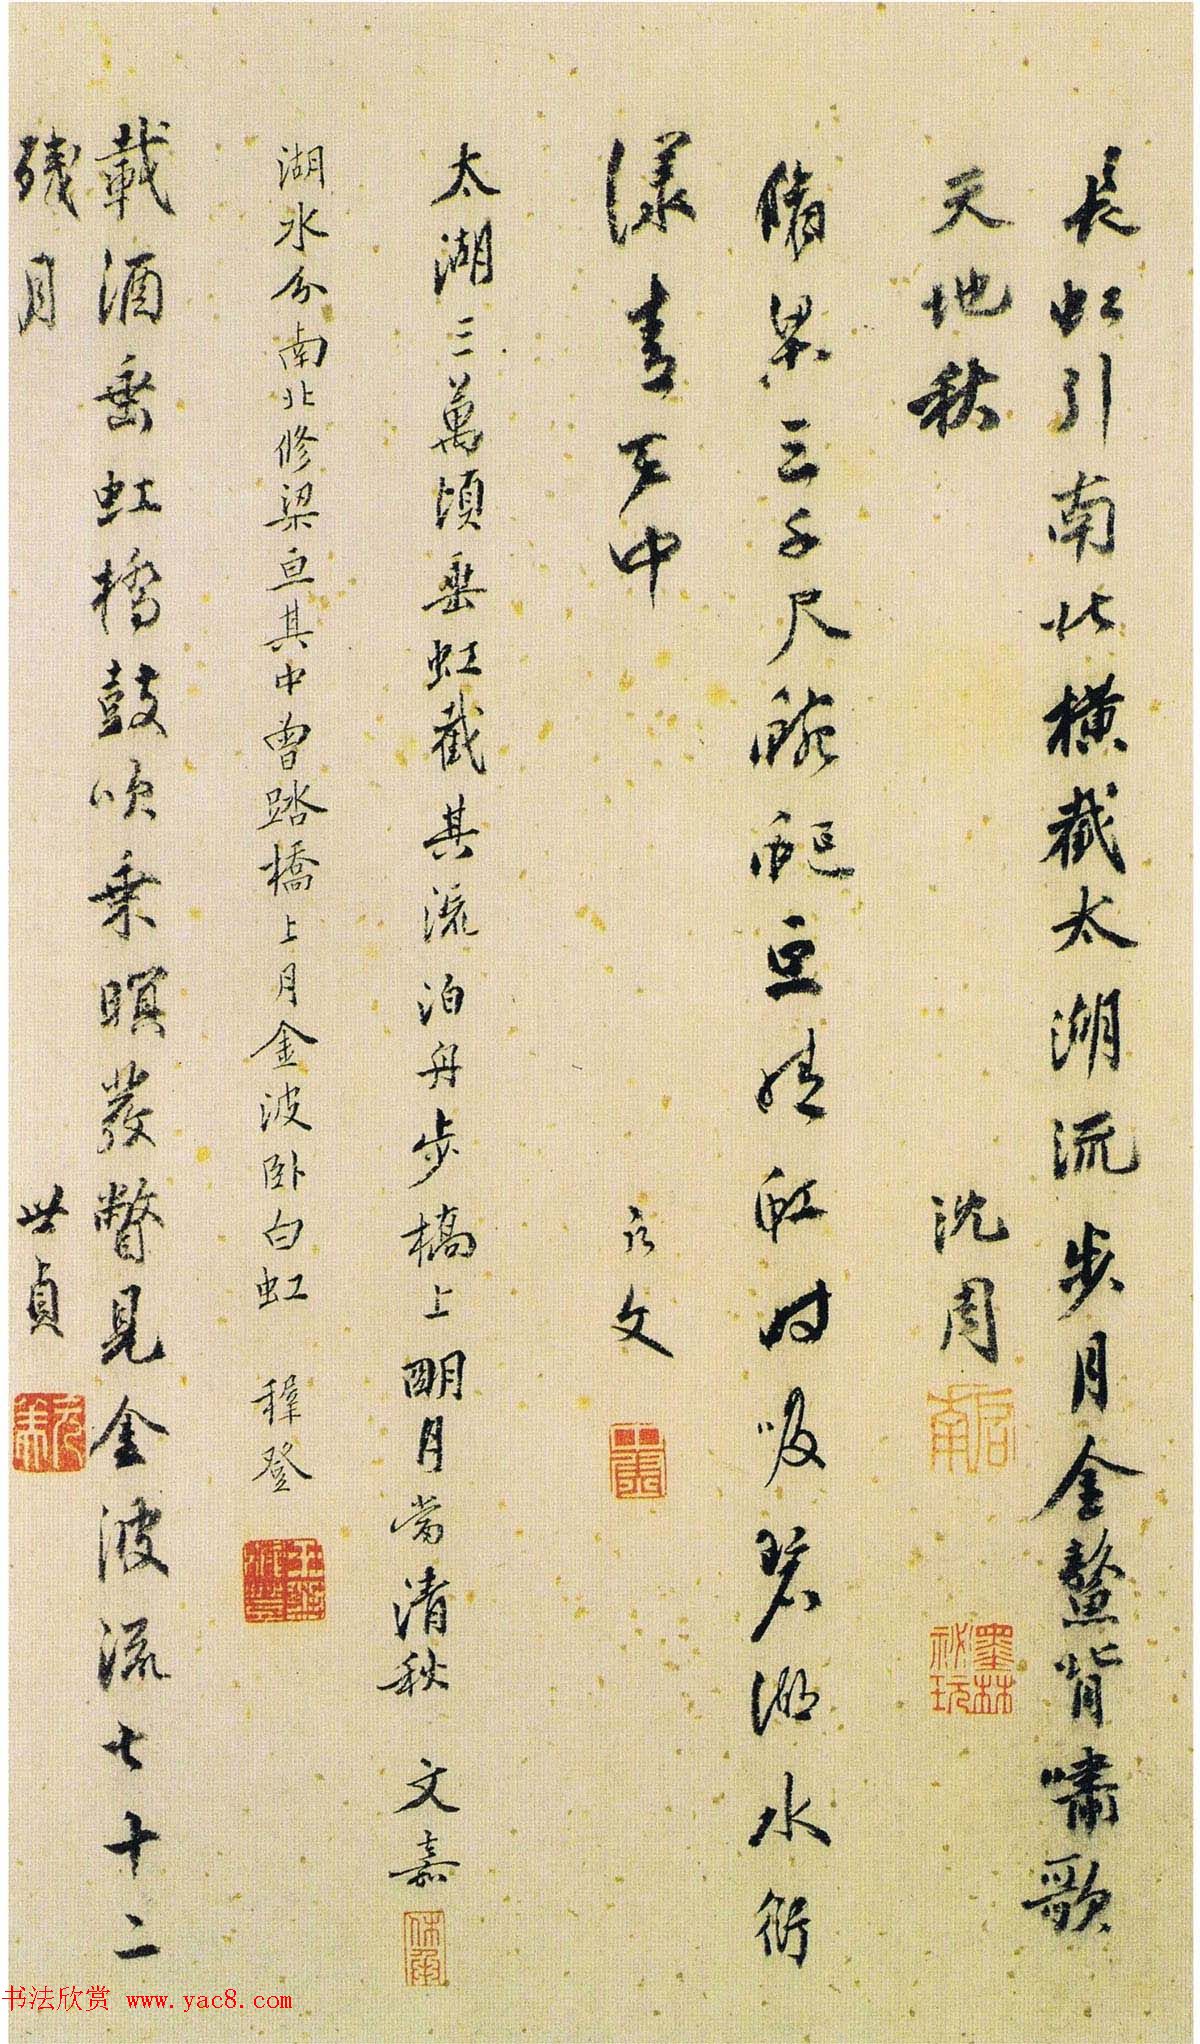 長虹引南北橫截太湖流步月金鰲背嘯歌
天地秋
沈周
啟南
墨林祕玩
脩梁三千尺蜿蜒亘晴虹時吸碧湖水衍
漾青天中
文
太湖三萬頃垂虹截其流泊舟步橋上明月當清秋 文嘉
休承
湖水分南北修梁亘其中曾踏橋上月金波卧白虹 穉登
載酒垂虹橋鼓吹乘暝發瞥見金波流七十二
殘月
世貞
元美
书法欣赏 www.yac8.com